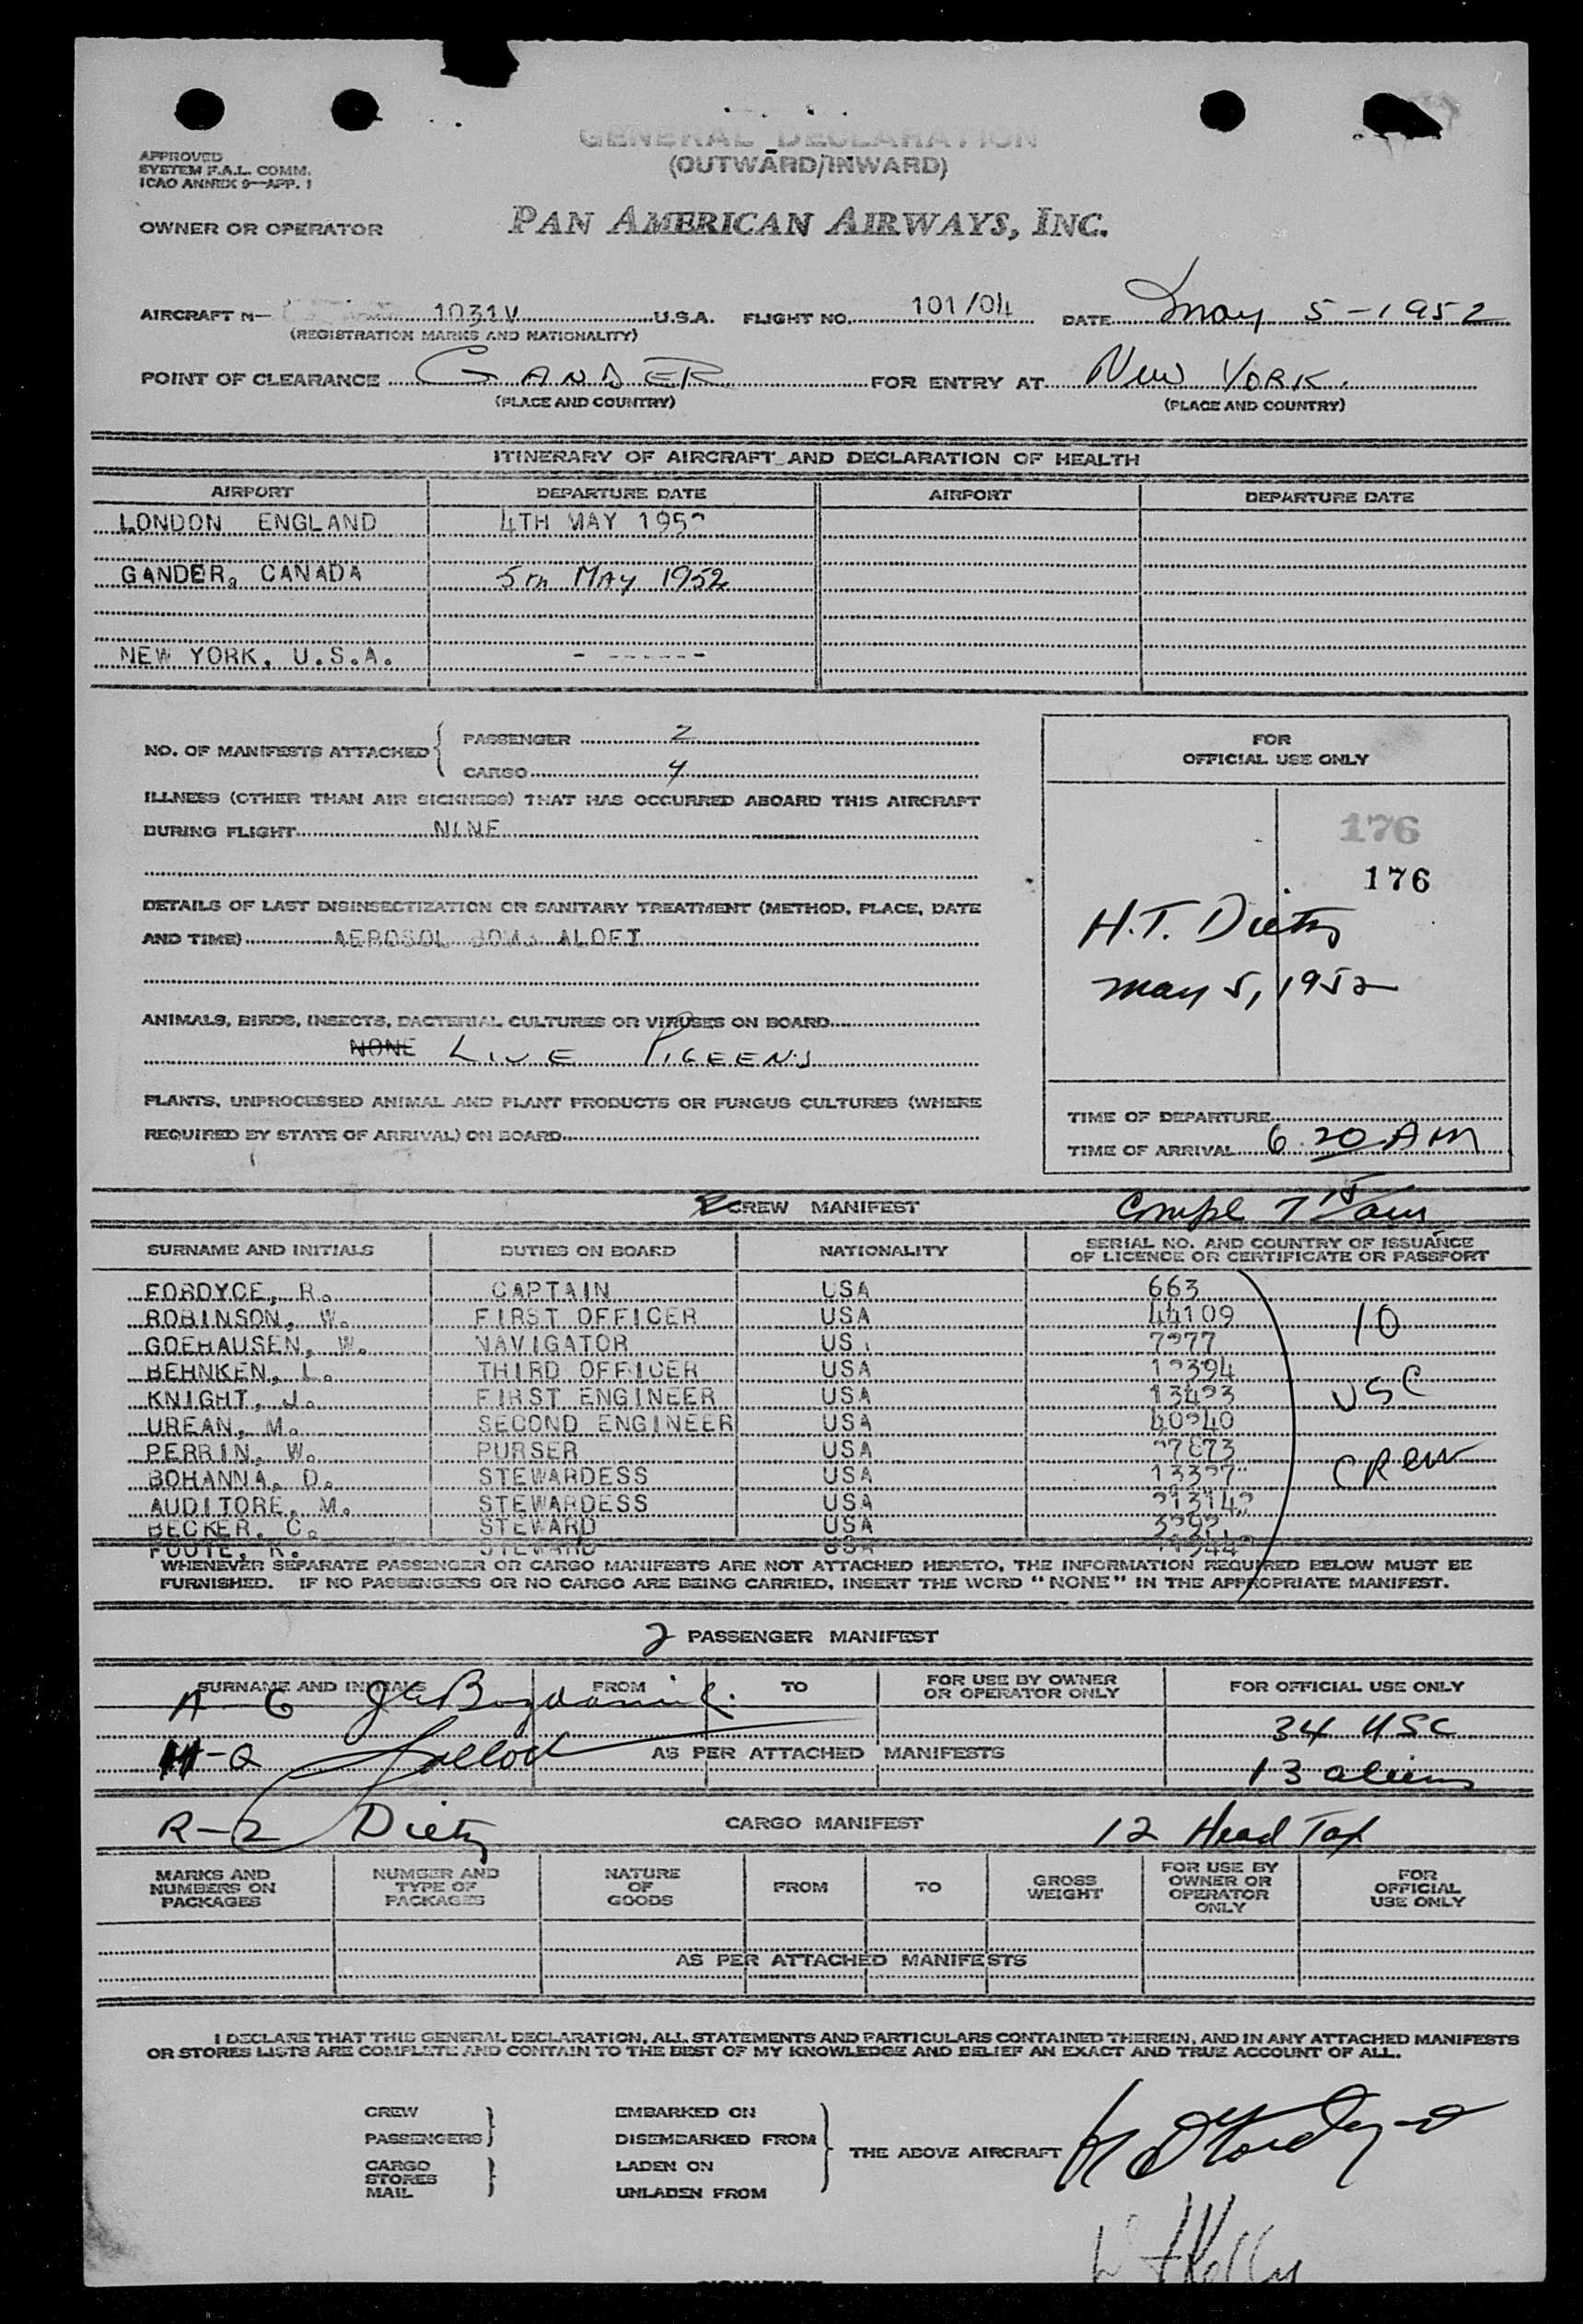 GENERAL DECLARATION
(OUTWARD/INWARD)
APPROVED
SYSTEM F.A.L. COMM.
ICAO ANNEX 9—APP. 1
OWNER OR OPERATOR PAN AMERICAN AIRWAYS, INC.
AIRCRAFT N— 1031V U.S.A. FLIGHT NO. 101/04 DATE May 5-1952
(REGISTRATION MARKS AND NATIONALITY)
POINT OF CLEARANCE GANDER FOR ENTRY AT New York.
(PLACE AND COUNTRY) (PLACE AND COUNTRY)
ITINERARY OF AIRCRAFT AND DECLARATION OF HEALTH
AIRPORT DEPARTURE DATE AIRPORT DEPARTURE DATE
LONDON ENGLAND 4TH MAY 1952
GANDER, CANADA 5TH MAY 1952
NEW YORK, U.S.A. - ------
NO. OF MANIFESTS ATTACHED { PASSENGER 2
CARGO 4
ILLNESS (OTHER THAN AIR SICKNESS) THAT HAS OCCURRED ABOARD THIS AIRCRAFT
DURING FLIGHT NINE
DETAILS OF LAST DISINSECTIZATION OR SANITARY TREATMENT (METHOD, PLACE, DATE
AND TIME) AEROSOL BOMB ALOFT
ANIMALS, BIRDS, INSECTS, BACTERIAL CULTURES OR VIRUSES ON BOARD
NONE LIVE PIGEENS
PLANTS, UNPROCESSED ANIMAL AND PLANT PRODUCTS OR FUNGUS CULTURES (WHERE
REQUIRED BY STATE OF ARRIVAL) ON BOARD
FOR
OFFICIAL USE ONLY
176
176
H.T. Dietz
May 5, 1952
TIME OF DEPARTURE
TIME OF ARRIVAL 6:20 AM
CREW MANIFEST Compl 7 15 am
SURNAME AND INITIALS DUTIES ON BOARD NATIONALITY SERIAL NO. AND COUNTRY OF ISSUANCE
OF LICENCE OR CERTIFICATE OR PASSPORT
FORDYCE, R. CAPTAIN USA 663
ROBINSON, W. FIRST OFFICER USA 44109
GOEHAUSEN, W. NAVIGATOR US 7277
BEHNKEN, L. THIRD OFFICER USA 12394
KNIGHT, J. FIRST ENGINEER USA 13423
UREAN, M. SECOND ENGINEER USA 40240
PERRIN, W. PURSER USA 27873
BOHANNA, D. STEWARDESS USA
AUDITORE, M. STEWARDESS USA 213142
BECKER, C. STEWARD USA
FOOTE, R. STEWARD USA
10
USC
Crew
WHENEVER SEPARATE PASSENGER OR CARGO MANIFESTS ARE NOT ATTACHED HERETO, THE INFORMATION REQUIRED BELOW MUST BE
FURNISHED. IF NO PASSENGERS OR NO CARGO ARE BEING CARRIED, INSERT THE WORD "NONE" IN THE APPROPRIATE MANIFEST.
2 PASSENGER MANIFEST
SURNAME AND INITIALS FROM TO FOR USE BY OWNER
OR OPERATOR ONLY FOR OFFICIAL USE ONLY
A-G
34 USC
H-Q AS PER ATTACHED MANIFESTS
13 aliens
R-Z Dietz CARGO MANIFEST 12 Head Tax
MARKS AND
NUMBERS ON
PACKAGES NUMBER AND
TYPE OF
PACKAGES NATURE
OF
GOODS FROM TO GROSS
WEIGHT FOR USE BY
OWNER OR
OPERATOR
ONLY FOR
OFFICIAL
USE ONLY
AS PER ATTACHED MANIFESTS
I DECLARE THAT THIS GENERAL DECLARATION, ALL STATEMENTS AND PARTICULARS CONTAINED THEREIN, AND IN ANY ATTACHED MANIFESTS
OR STORES LISTS ARE COMPLETE AND CONTAIN TO THE BEST OF MY KNOWLEDGE AND BELIEF AN EXACT AND TRUE ACCOUNT OF ALL.
CREW
PASSENGERS }
CARGO
STORES
MAIL }
EMBARKED ON
DISEMBARKED FROM
LADEN ON
UNLADEN FROM }
THE ABOVE AIRCRAFT